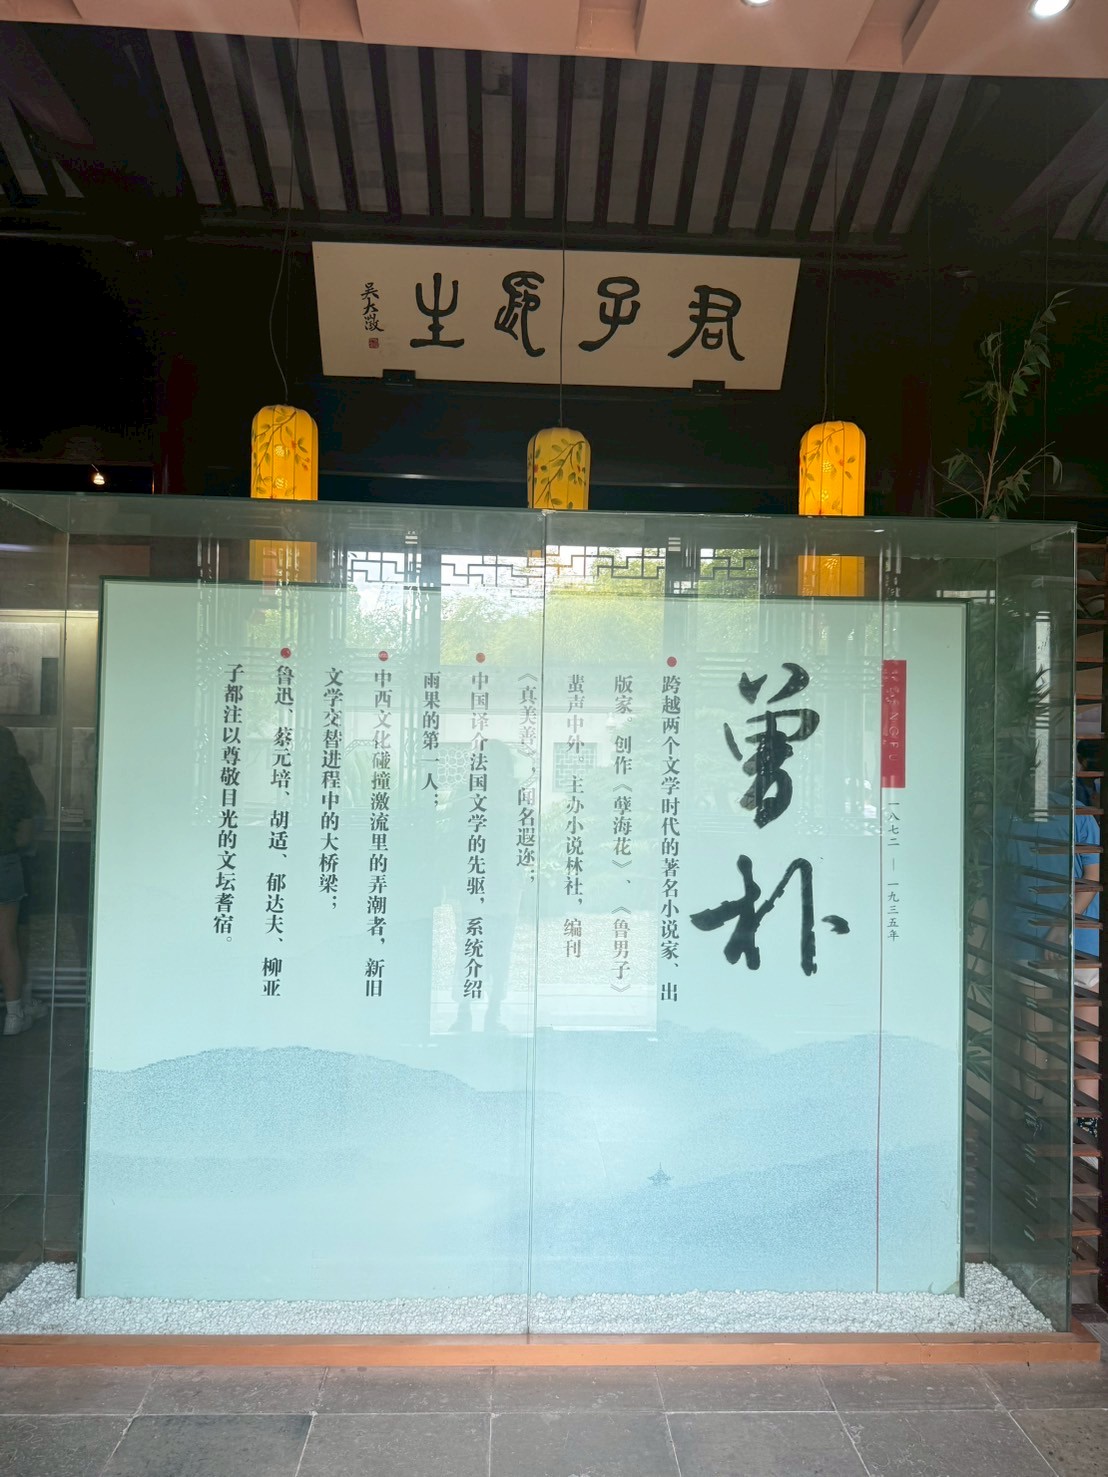 君子生
吴大澂
一八七二 — 一九三五年
曾朴
跨越两个文学时代的著名小说家、出
版家。创作《孽海花》、《鲁男子》
蜚声中外。主办小说林社，编刊
《真美善》，闻名遐迩；
中国译介法国文学的先驱，系统介绍
雨果的第一人；
中西文化碰撞激流里的弄潮者，新旧
文学交替进程中的大桥梁；
鲁迅、蔡元培、胡适、郁达夫、柳亚
子都注以尊敬目光的文坛耆宿。